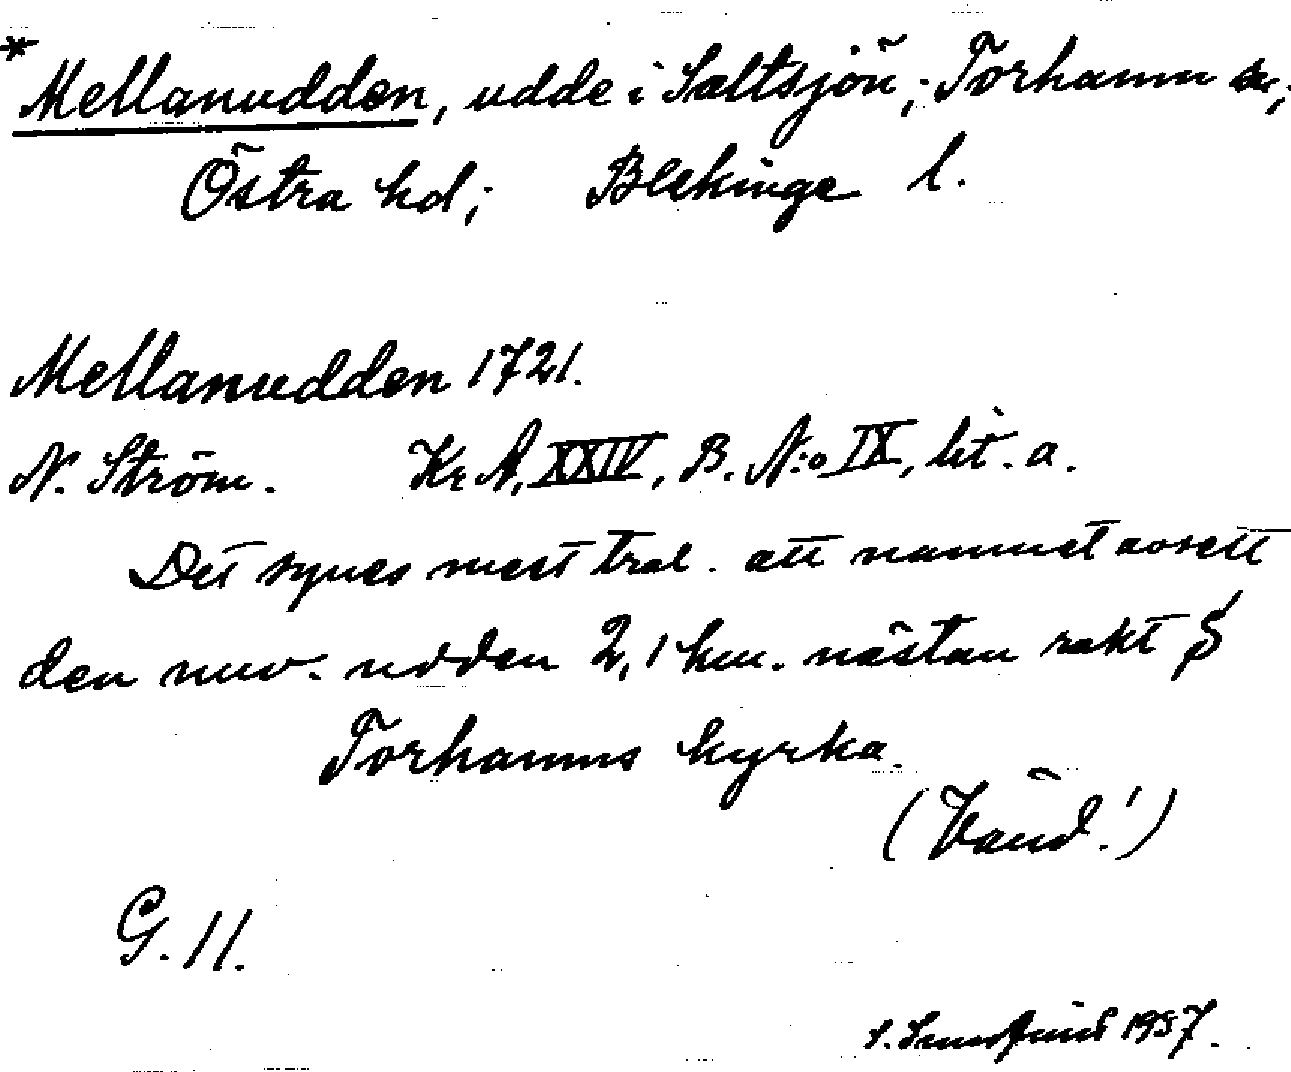 *Mellanudden, udde i Saltsjön; Torhamn sn;
Östra hd; Blekinge l.
Mellanudden 1721.
N. Ström. Kr A, XXIV, B. N:o IX, lit. a.
Det synes mest trol. att namnet avsett
den nuv. udden 2,1 km. nästan rakt S
Torhamns kyrka.
(Vänd!)
G. 11.
1937.